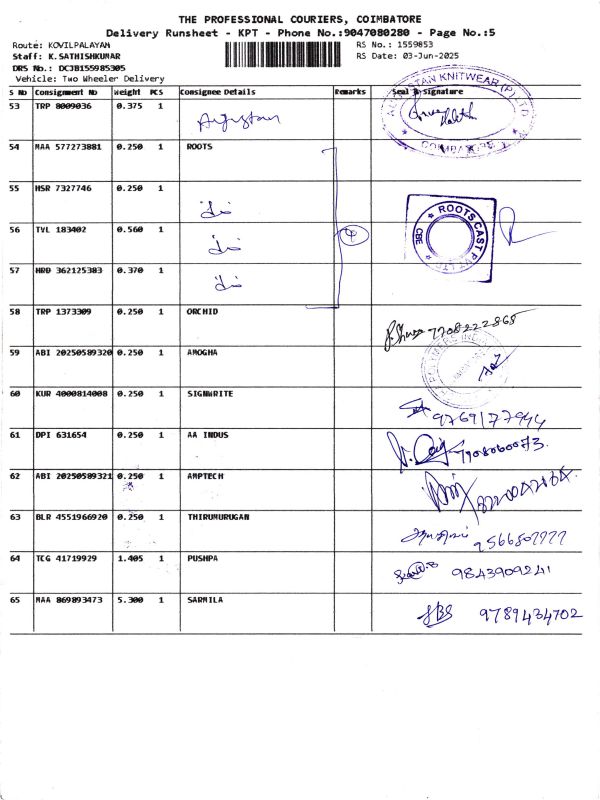 THE PROFESSIONAL COURIERS, COIMBATORE
Delivery Runsheet - KPT - Phone No.:9047080280 - Page No.:5
Route: KOVILPALAYAM
RS No.: 1559853
Staff: K.SATHISHKUMAR
RS Date: 03-Jun-2025
DRS No.: DCJB155985305
Vehicle: Two Wheeler Delivery
S No Consignment No Weight PCS Consignee Details Remarks Seal & Signature
53 TRP 8009036 0.375 1
KNITWEAR (P) LTD
COIMBATORE
54 MAA 577273881 0.250 1 ROOTS
55 HSR 7327746 0.250 1
56 TVL 183402 0.560 1
4
ROOTS CAST PVT LTD
CBE
57 HRD 362125383 0.370 1
58 TRP 1373309 0.250 1 ORCHID
7708222868
59 ABI 20250589320 0.250 1 AMOGHA
60 KUR 4000814008 0.250 1 SIGNWRITE
9769177944
61 DPI 631654 0.250 1 AA INDUS
7908060073.
62 ABI 20250589321 0.250 1 AMPTECH
63 BLR 4551966920 0.250 1 THIRUMURUGAN
9566807777
64 TCG 41719929 1.405 1 PUSHPA
9843909241
65 MAA 869893473 5.300 1 SARMILA
9789434702